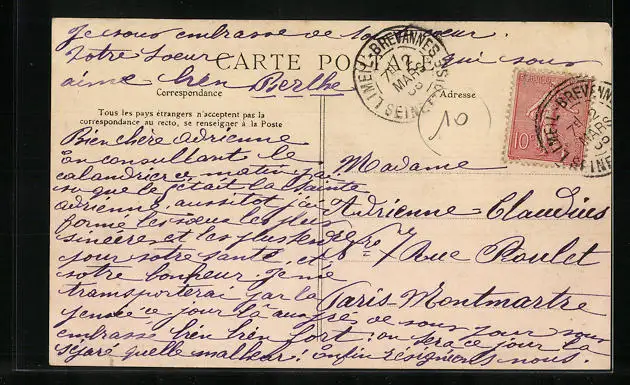 Je vous embrasse de tout coeur.
Votre Soeur qui vous
aime bien Berthe
CARTE POSTALE
Correspondance
Adresse
Tous les pays étrangers n'acceptent pas la
correspondance au recto, se renseigner à la Poste
LIMEIL-BREVANNES
SEINE-ET-OISE
MARS
10
10
LIMEIL-BREVANNES
MARS
Bien chère adrienne
en consultant le
calandrier ce matin j'ai
vu que c'était la Sainte
adrienne, aussitôt j'ai
formé les voeux les plus
sincères et les plus
pour votre santé et
votre bonheur. Je me
transporterai par la
pensée ce jour là auprès de vous pour vous
embrassé bien bien fort: on sera ce jour là
séparé quelle malheur! enfin résignons nous.
Madame
Adrienne Claudius
7 Rue Poulet
Paris-Montmartre